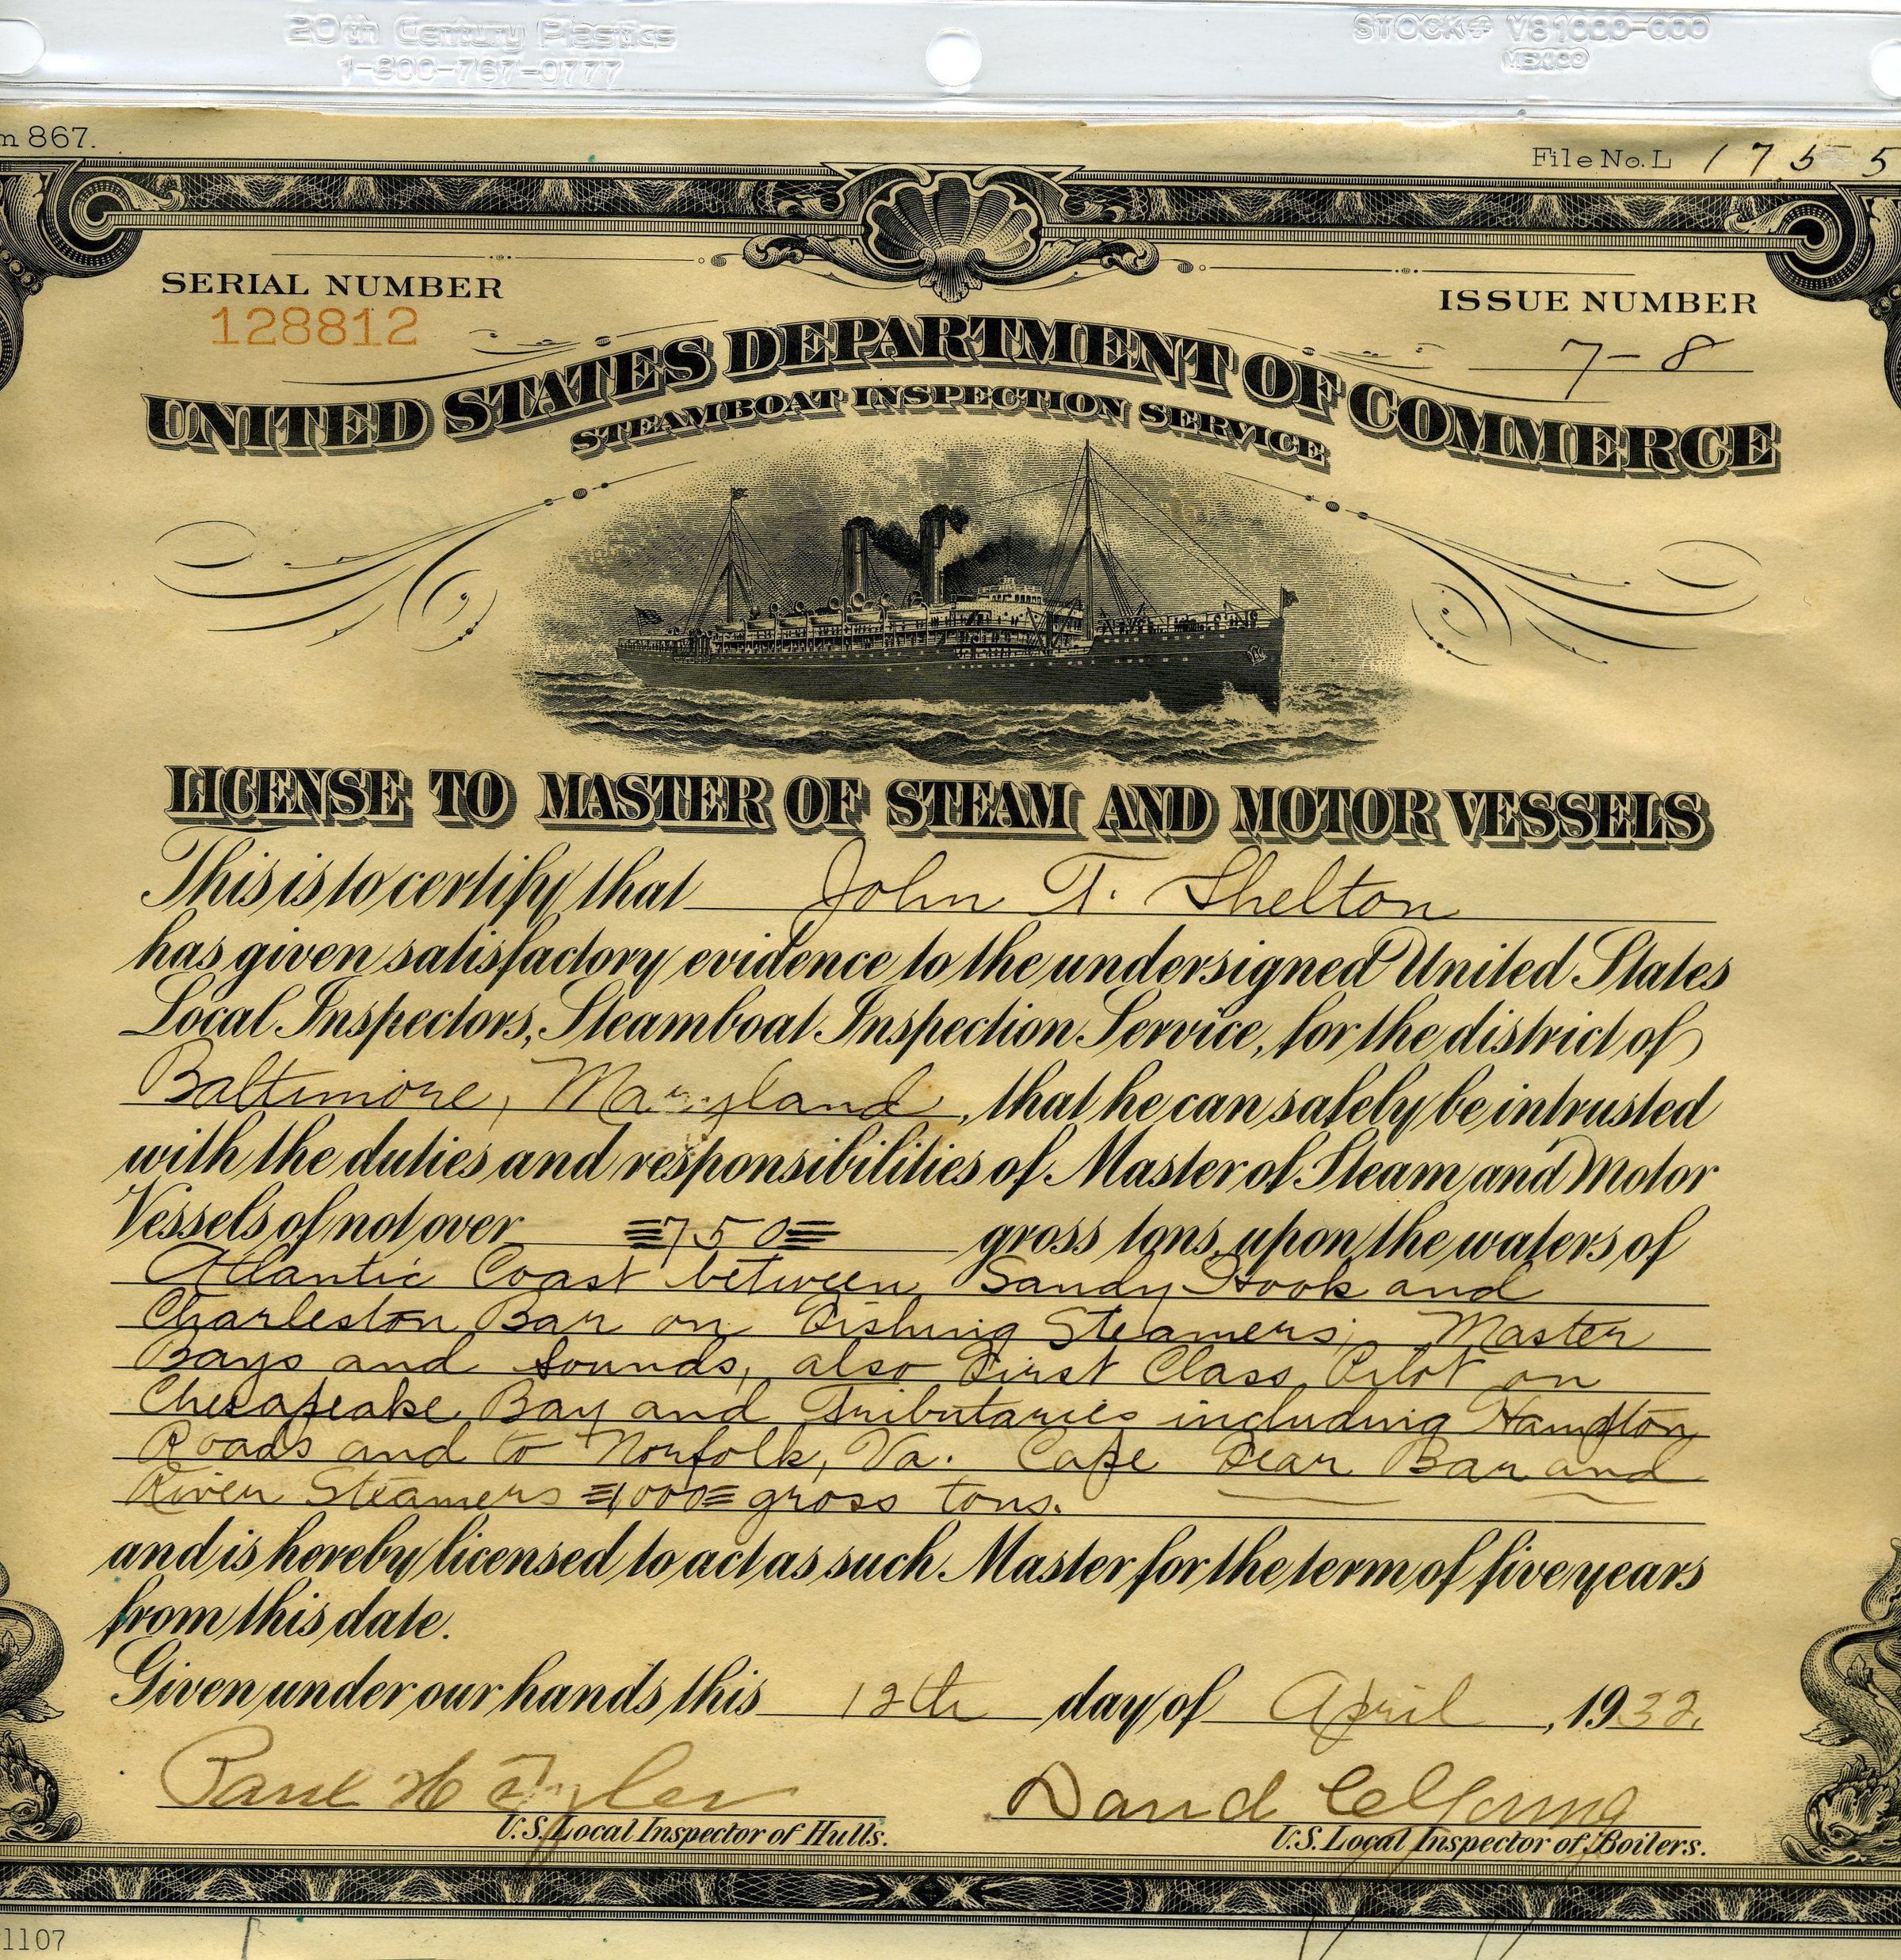 20th Century Plastics
1-800-767-0777
STOCK# V81000-000
MEXICO
m 867.
File No. L 1755
SERIAL NUMBER
128812
ISSUE NUMBER
7-8
UNITED STATES DEPARTMENT OF COMMERCE
STEAMBOAT INSPECTION SERVICE
LICENSE TO MASTER OF STEAM AND MOTOR VESSELS
This is to certify that John T. Shelton
has given satisfactory evidence to the undersigned United States
Local Inspectors, Steamboat Inspection Service, for the district of
Baltimore, Maryland, that he can safely be intrusted
with the duties and responsibilities of Master of Steam and Motor
Vessels of not over 750 gross tons, upon the waters of
Atlantic Coast between Sandy Hook and
Charleston Bar on Fishing Steamers; Master
Bays and Sounds, also First Class Pilot on
Chesapeake Bay and Tributaries including Hampton
Roads and to Norfolk, Va. Cape Fear Bar and
River Steamers 1000 gross tons.
and is hereby licensed to act as such Master for the term of five years
from this date.
Given under our hands this 12th day of April, 1932.
Paul H Tyler
U.S. Local Inspector of Hulls.
David
U.S. Local Inspector of Boilers.
1107